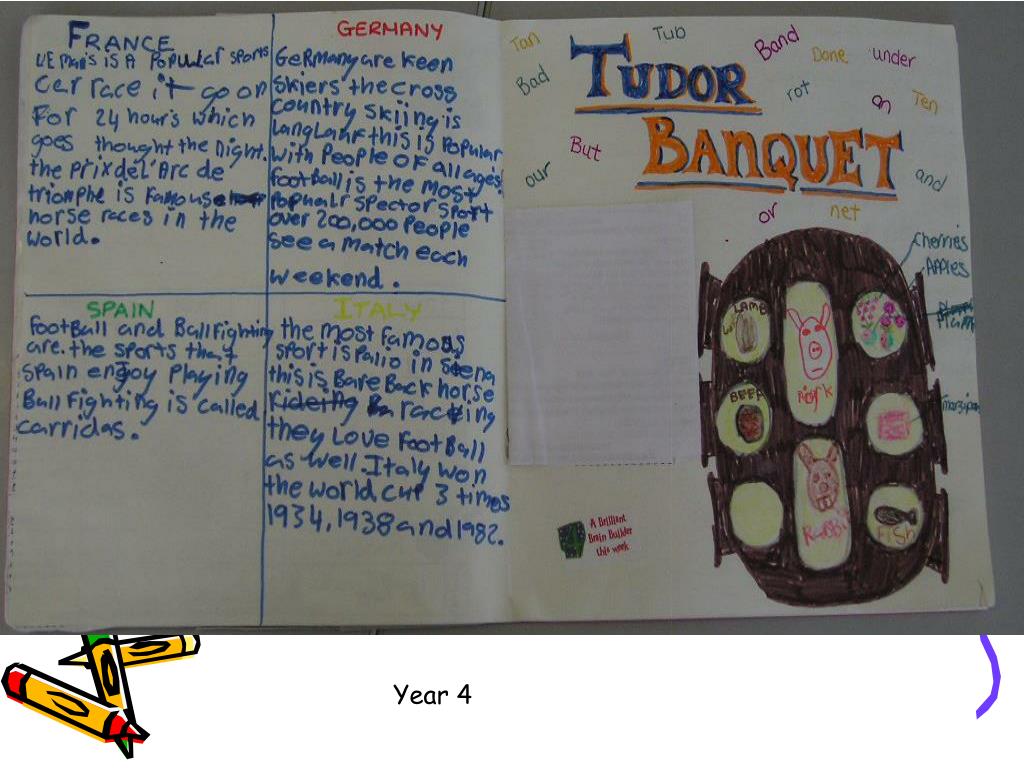 FRANCE
LE Man's is A Popular sports
car race it go on
For 24 hours which
goes thought the night.
the Prix del' Arc de
triomphe is famous
horse races in the
world.
GERMANY
GeRmany are keen
skiers the cross
country skiing is
langlanf this is Popular
with People OF all ages.
football is the most
Popualr spector sport
over 200,000 People
see a match each
weekend.
SPAIN
FootBall and BallFighting
are. the sports that
Spain enjoy Playing
Ball Fighting is called
carridas.
ITALY
the most famous
sport is palio in siena
this is Bare Back horse
rideing Ba racting
they Love FootBall
as well. Italy won
the world cup 3 times
1934, 1938 and 1982.
TUDOR
BANQUET
Tan
Tub
Band
Done
under
Bad
rot
on
Ten
But
our
and
or
net
Cherries
Apples
Plum
marzipan
LAMB
PORK
BEEF
Rabbit
FISH
A Brilliant
Brain Builder
this week
Year 4